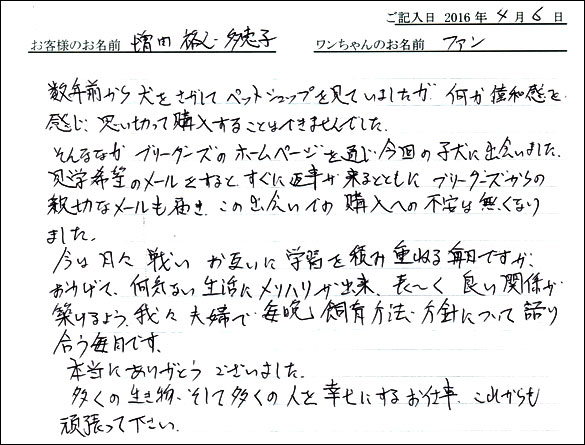 ご記入日 2016年 4月 6日
お客様のお名前 増田 格心・多恵子 ワンちゃんのお名前 ファン
数年前から犬をさがしてペットショップを見ていましたが、何か違和感を
感じ、思い切って購入することはできませんでした。
そんななか ブリーダンズのホームページを通じ今回の子犬に出会いました。
見学希望のメールをすると、すぐに返事が来るとともにブリーダーズからの
親切なメールも届き、この出会いでの購入への不安は無くなり
ました。
今は日々戦い お互いに学習を積み重ねる毎日ですが、
おかげで、何気ない生活にメリハリが出来、長〜く良い関係が
築けるよう、我々夫婦で毎晩、飼育方法・方針について語り
合う毎日です。
本当にありがとうございました。
多くの生き物、そして多くの人を幸せにするお仕事、これからも
頑張って下さい。